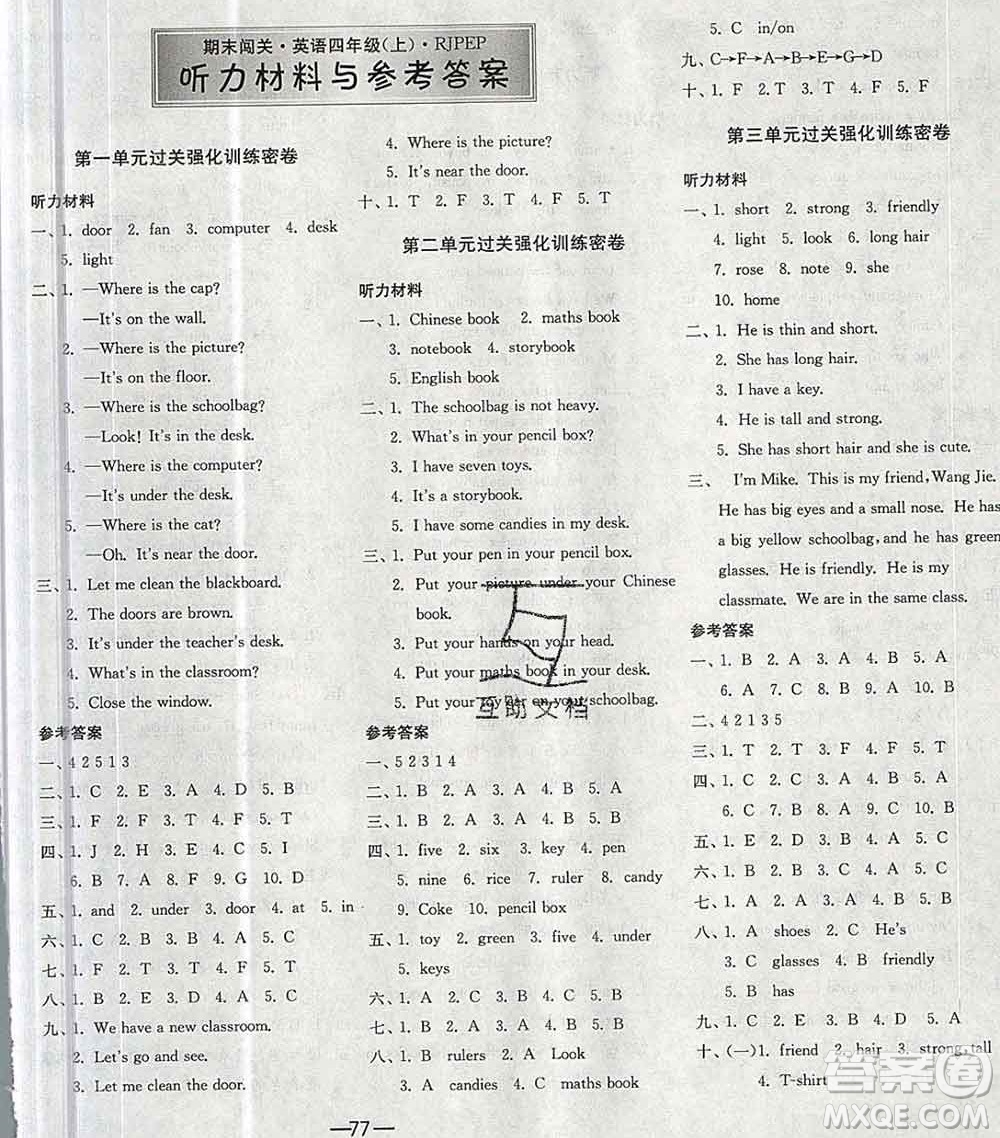 期末闯关·英语四年级(上)·RJPEP
听力材料与参考答案
第一单元过关强化训练密卷
听力材料
一、1. door 2. fan 3. computer 4. desk
5. light
二、1. —Where is the cap?
—It's on the wall.
2. —Where is the picture?
—It's on the floor.
3. —Where is the schoolbag?
—Look! It's in the desk.
4. —Where is the computer?
—It's under the desk.
5. —Where is the cat?
—Oh. It's near the door.
三、1. Let me clean the blackboard.
2. The doors are brown.
3. It's under the teacher's desk.
4. What's in the classroom?
5. Close the window.
参考答案
一、4 2 5 1 3
二、1. C 2. E 3. A 4. D 5. B
三、1. F 2. F 3. T 4. F 5. T
四、1. J 2. H 3. E 4. C 5. I
6. B 7. A 8. F 9. G 10. D
五、1. and 2. under 3. door 4. at 5. in
六、1. C 2. B 3. C 4. A 5. C
七、1. F 2. T 3. T 4. F 5. T
八、1. C 2. A 3. B 4. A 5. C
九、1. We have a new classroom.
2. Let's go and see.
3. Let me clean the door.
4. Where is the picture?
5. It's near the door.
十、1. T 2. F 3. T 4. F 5. T
第二单元过关强化训练密卷
听力材料
一、1. Chinese book 2. maths book
3. notebook 4. storybook
5. English book
二、1. The schoolbag is not heavy.
2. What's in your pencil box?
3. I have seven toys.
4. It's a storybook.
5. I have some candies in my desk.
三、1. Put your pen in your pencil box.
2. Put your picture under your Chinese
book.
3. Put your hands on your head.
4. Put your maths book in your desk.
5. Put your toy car on your schoolbag.
参考答案
一、5 2 3 1 4
二、1. B 2. A 3. A 4. B 5. B
三、1. B 2. B 3. A 4. B 5. B
四、1. five 2. six 3. key 4. pen
5. nine 6. rice 7. ruler 8. candy
9. Coke 10. pencil box
五、1. toy 2. green 3. five 4. under
5. keys
六、1. A 2. C 3. A 4. B 5. C
七、1. C 2. B 3. A 4. C 5. B
八、1. B rulers 2. A Look
3. A candies 4. C maths book
5. C in/on
九、C→F→A→B→E→G→D
十、1. F 2. T 3. T 4. F 5. F
第三单元过关强化训练密卷
听力材料
一、1. short 2. strong 3. friendly
4. light 5. look 6. long hair
7. rose 8. note 9. she
10. home
二、1. He is thin and short.
2. She has long hair.
3. I have a key.
4. He is tall and strong.
5. She has short hair and she is cute.
三、I'm Mike. This is my friend, Wang Jie.
He has big eyes and a small nose. He has
a big yellow schoolbag, and he has green
glasses. He is my friend. He is my
classmate. We are in the same class.
参考答案
一、1. B 2. A 3. A 4. B 5. A
6. A 7. A 8. B 9. A 10. B
二、4 2 1 3 5
三、1. T 2. T 3. F 4. F 5. T
四、1. C 2. C 3. A 4. B 5. C
6. C 7. B 8. A 9. B 10. C
五、1. C 2. B 3. A 4. C 5. B
六、1. A 2. B 3. B 4. A 5. A
七、1. A 2. A 3. B 4. B 5. B
八、1. A shoes 2. C He's
3. C glasses 4. B friendly
5. B has
九、1. C 2. E 3. B 4. D 5. A
十、(一)1. friend 2. hair 3. strong, tall
4. T-shirt
—77—
互助文档
答案圈
MXQE.COM